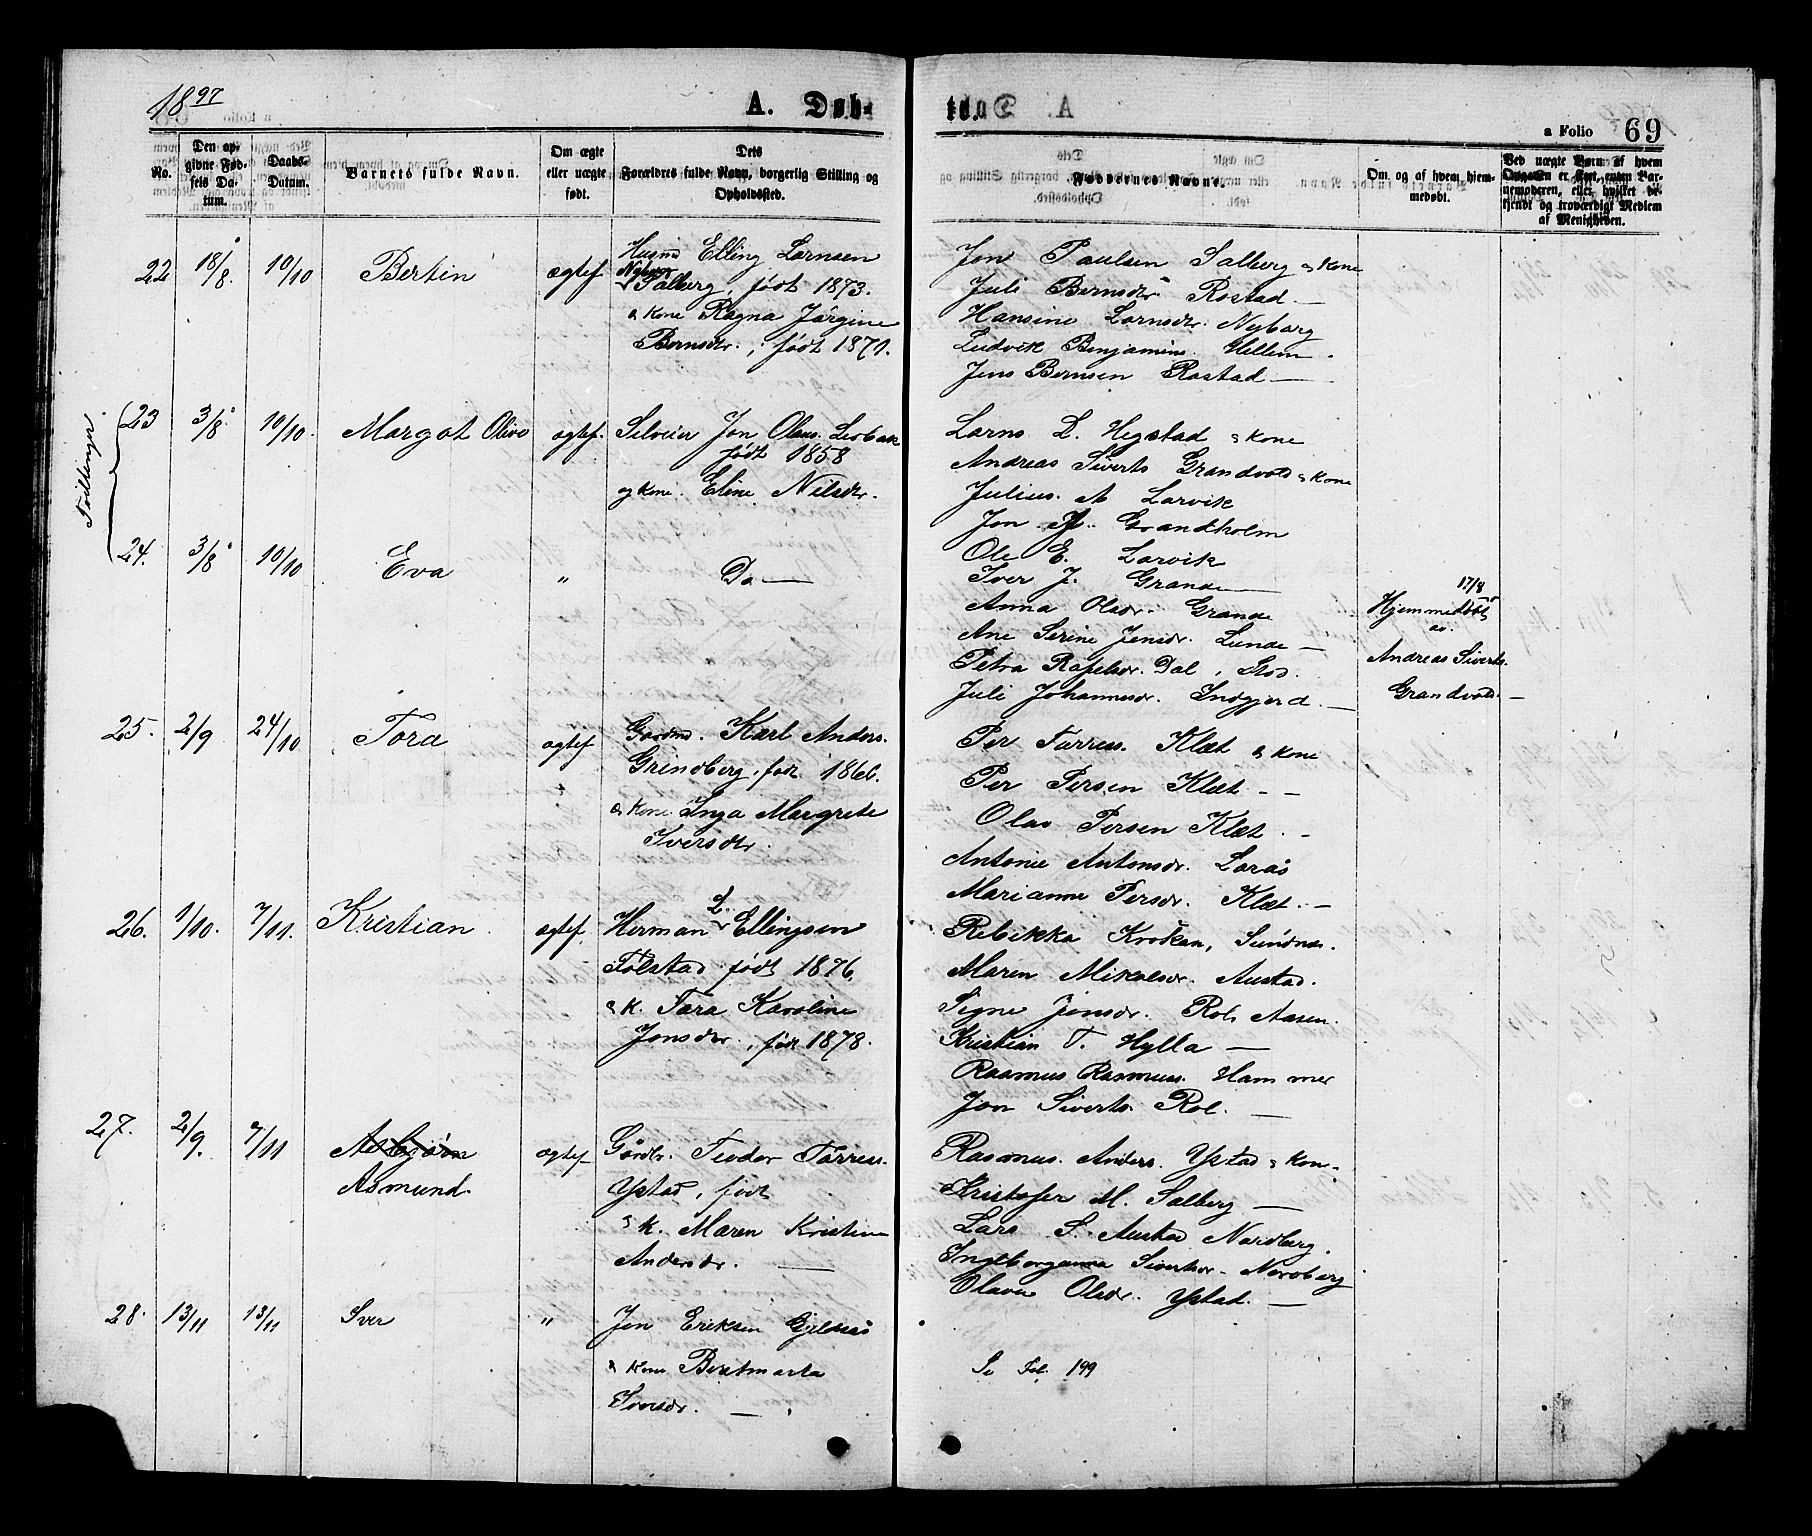 1897
A. Døb-
bt.
a Folio 69
No.
Den opgivne Fødsels Datum.
Daabs-Datum.
Barnets fulde Navn.
Om ægte eller uægte født.
Dets Forældres fulde Navn, borgerlig Stilling og Opholdssted.
Faddernes Navne.
Om og af hvem hjemmedøbt.
Ved uægte Børn af hvem Opgaven er skeet, enten Barnemoderen, eller hvilket bekjendt og troværdigt Medlem af Menigheden.
22 18/8. 10/10 Bertin ægtef Husmd Elling Larnsen
Nyborg
Salberg, født 1873.
& kone Ragna Jørgine
Bernsdtr., født 1871.
Jon Paulsen Salberg & kone
Juli Bernsdtr Rostad —
Hansine Larnsdtr. Nyborg
Ludvik Benjamins. Hellem.
Jens Bernsen Rostad —
Tvillinger.
23 3/8. 10/10. Margot Olive ægtef. Selveier Jon Olaus. Lerbak
født 1858
og kone. Eline Nilsdtr.
Larns L. Hegstad & kone
Andreas Siverts Grandvold & kone
Julius. A Larvik
Jon P. Grandholm
24. 3/8 10/10 Eva " Do —
Ole E. Larvik
Iver J. Grande —
Anna Olsdr. Grande
Ane Serine Jensdr. Lunde —
Petra Rafelsdr. Dal, Stod.
Juli Johannesdr. Indgjerd. —
17/8
Hjemmedøbt
av.
Andreas Siverts.
Grandvold —
25. 2/9 24/10 Tora ægtef Gaardmd. Karl Anders.
Grindberg, født 1866.
& kone. Inga Margrete
Iversdtr.
Per Tørress. Klæt & kone
Per Persen Klæt. —
Olav Persen Klæt. —
Antonie Antonsdr. Laraas
Marianne Persdr. Klæt. —
26. 1/10. 7/11. Kristian ægtef. Herman L. Ellingsen
Følstad født 1876,
& k. Tora Karoline
Jonsdtr., født 1878.
Rebikka Krokan, Sundnes.
Maren Mikalsdr. Austad.
Signe Jonsdr. Rol, Aasen.
Kristian T. Hylla —
Rasmus Rasmuss. Hammer
Jon Siverts. Rol. —
27. 2/9. 7/11 Asbjørn
Asmund. ægtef. Gårdbr. Teodor Tørress.
Ystad, født
& k. Maren Kristine
Andersdr. —
Rasmus. Anders. Ystad & kone.
Kristofer M. Salberg —
Lars S. Austad Nordberg.
Ingeborganna Sivertsdr. Nordberg
Olava Olsdr. Ystad. —
28. 13/11 13/11 Iver " Jon Eriksen Gjelsås
& kone Beritmarta
Iversdr. —
Se Fol. 199